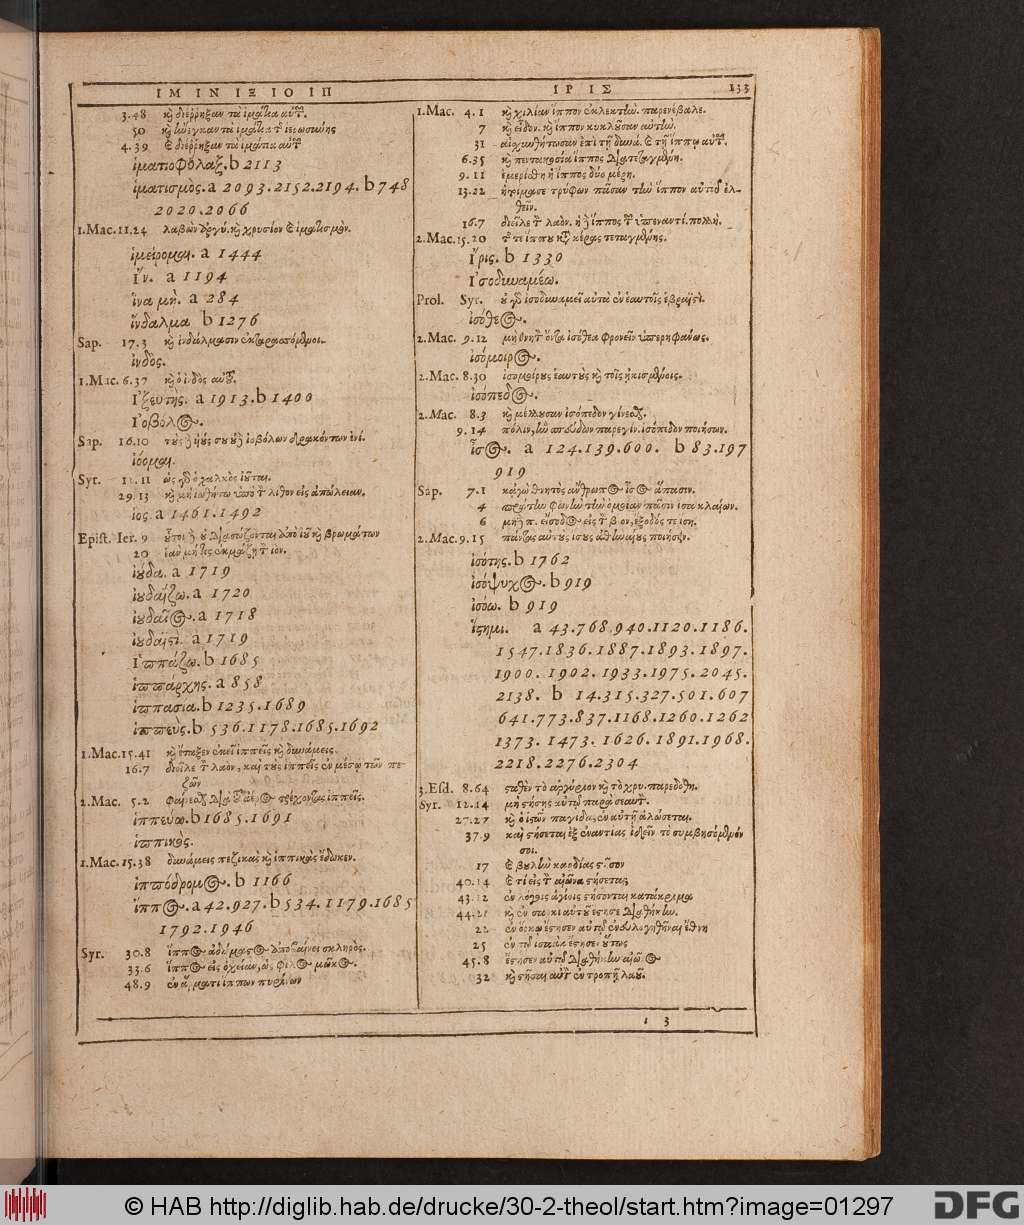 ΙΜ ΙΝ ΙΞ ΙΟ ΙΠ
3.48 καὶ διέῤῥηξαν τὰ ἱμάτια
50 καὶ τὰ ἱμάτια
4.39 διέῤῥηξαν τὰ ἱμάτια
ἱματιοφύλαξ. b 2113
ἱματισμὸς. a 2093. 2152. 2194. b 748
2020. 2066
1.Mac. 11.24 λαβὼν καὶ χρυσίον ἱματισμὸν.
ἱμείρομαι. a 1444
Ἵν. a 1194
ἵνα μὴ. a 284
ἴνδαλμα b 1276
Sap. 17.3
ἰνδὸς.
1.Mac. 6.37 καὶ ὁ ἰνδὸς
Ἰξευτὴς. a 1913. b 1400
Ἰοβόλος.
Sap. 16.10 ἰοβόλων δρακόντων
ἰόομαι.
Syr. 12.11 ὡς ὁ χαλκὸς
29.13 καὶ μὴ λίθον εἰς ἀπώλειαν.
ἰὸς. a 1461. 1492
Epist. Ier. 9 καὶ βρωμάτων
20
ἰούδα. a 1719
ἰουδαΐζω. a 1720
ἰουδαῖος. a 1718
ἰουδαϊστὶ. a 1719
Ἱππάζω. b 1685
ἱππάρχης. a 858
ἱππασία. b 1235. 1689
ἱππεὺς. b 536. 1178. 1685. 1692
1.Mac. 15.41 καὶ ἐκεῖ ἱππεῖς καὶ δυνάμεις.
16.7 διεῖλε τὸν λαὸν, καὶ τοὺς ἱππεῖς ἐν μέσῳ τῶν πε-
ζῶν
2.Mac. 5.2 τρέχοντας ἱππεῖς.
ἱππεύω. b 1685. 1691
ἱππικὸς.
1.Mac. 15.38 δυνάμεις πεζικὰς καὶ ἱππικὰς ἔδωκεν.
ἱππόδρομος. b 1166
ἵππος. a 42. 927. b 534. 1179. 1685
1792. 1946
Syr. 30.8 ἵππος ἀδάμαστος ἀποβαίνει σκληρὸς.
33.6 ἵππος εἰς ὀχείαν, ὡς φίλος μῶκος.
48.9 ἐν ἅρματι ἵππων πυρίνων
ΙΡ ΙΣ
133
1.Mac. 4.1 καὶ χιλίαν ἵππον ἐκλεκτὴν. παρενέβαλε.
7 καὶ εἶδον. καὶ ἵππον κυκλοῦσαν αὐτὴν.
31 αἰσχυνθήτωσαν ἐπὶ τῇ δυνά. τῇ ἵππῳ
6.35 καὶ πεντακοσία ἵππος διατεταγμένη.
9.11 ἐμερίσθη ἡ ἵππος δύο μέρη.
13.22 ἡτοίμασε τρύφων πᾶσαν τὴν ἵππον αὐτοῦ ἐλ-
θεῖν.
16.7 διεῖλε τὸν λαὸν. ἡ ἵππος τῶν ὑπεναντί. πολλὴ.
2.Mac. 15.20 τῆς τε ἵππου κατὰ κέρας τεταγμένης.
Ἶρις. b 1330
Ἰσοδυναμέω.
Prol. Syr. οὐ γὰρ ἰσοδυναμεῖ αὐτὰ ἐν ἑαυτοῖς ἑβραϊστὶ.
ἰσόθεος.
2.Mac. 9.12 μὴ θνητὸν ὄντα ἰσόθεα φρονεῖν ὑπερηφάνως.
ἰσόμοιρος.
2.Mac. 8.30 ἰσομοίρους ἑαυτοὺς καὶ τοῖς ᾐκισμένοις.
ἰσόπεδος.
2.Mac. 8.3 καὶ μέλλουσαν ἰσόπεδον γίνεσθαι.
9.14 πόλιν, ἣν σπεύδων παρεγίν. ἰσόπεδον ποιῆσαι.
ἶσος. a 124. 139. 600. b 83. 197
919
Sap. 7.1 κἀγὼ θνητὸς ἄνθρωπος ἶσος ἅπασιν.
4 πρώτην φωνὴν τὴν ὁμοίαν πᾶσιν ἶσα κλαίων.
6 μία π. εἴσοδος εἰς τὸν βίον, ἔξοδός τε ἴση.
2.Mac. 9.15 πάντας αὐτοὺς ἴσους ἀθηναίοις ποιήσειν.
ἰσότης. b 1762
ἰσόψυχος. b 919
ἰσόω. b 919
ἵστημι. a 43. 768. 940. 1120. 1186.
1547. 1836. 1887. 1893. 1897.
1900. 1902. 1933. 1975. 2045.
2138. b 14. 315. 327. 501. 607
641. 773. 837. 1168. 1260. 1262
1373. 1473. 1626. 1891. 1968.
2218. 2276. 2304
3.Esd. 8.64 σταθὲν τὸ ἀργύριον καὶ τὸ χρυ. παρεδόθη.
Syr. 12.14 μὴ στήσῃς αὐτὸν παρὰ σεαυτῷ.
27.27 καὶ ὁ ἱστῶν παγίδας, ἐν αὐτῇ ἁλώσεται.
37.9 καὶ στήσεται ἐξ ἐναντίας ἰδεῖν τὸ συμβησόμενόν
σοι.
17 βουλὴν καρδίας στῆσον
40.14 στήσεται
43.12 ἐν λόγοις ἁγίοις στήσονται κατάκριμα
44.21 καὶ ἐν σαρκὶ αὐτοῦ ἔστησε διαθήκην.
22 ἐν ὅρκῳ ἔστησεν αὐτῷ ἐνευλογηθῆναι ἔθνη
25 ἐν τῷ ἰσαὰκ ἔστησεν οὕτως
45.8 ἔστησεν αὐτῷ διαθήκην αἰῶνος
32 καὶ στῆσαι ἐν τροπῇ λαοῦ.
i 3
© HAB http://diglib.hab.de/drucke/30-2-theol/start.htm?image=01297
DFG